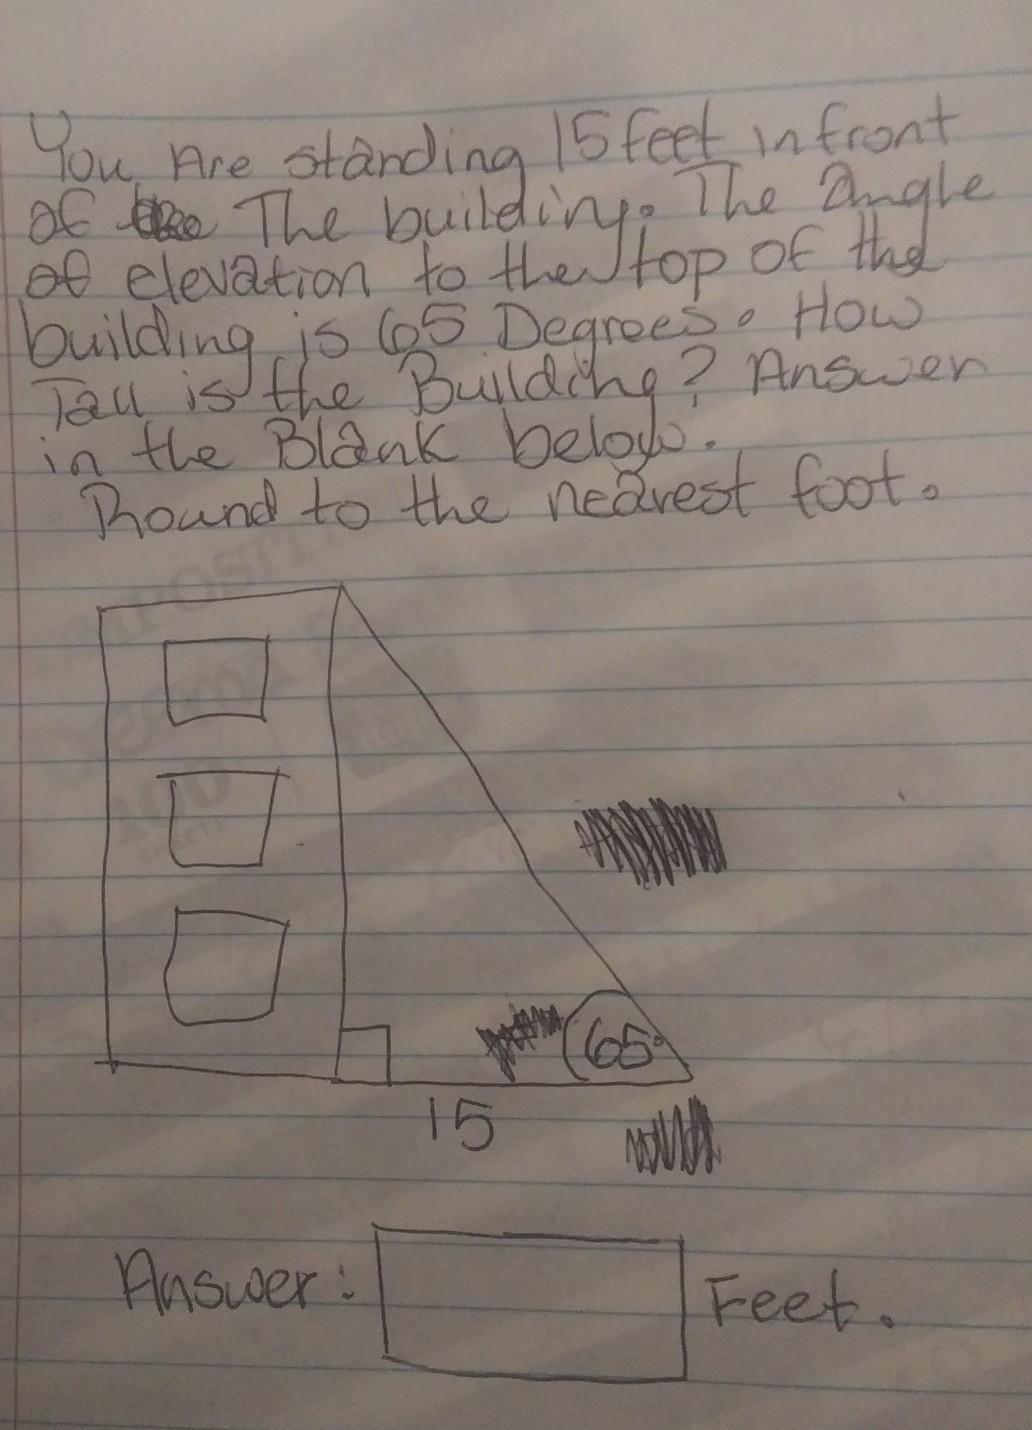 You Are standing 15 feet in front
of The building. The angle
of elevation to the top of the
building is 65 Degrees. How
Tall is the Building? Answer
in the Blank below.
Round to the nearest foot.
65°
15
Answer: Feet.